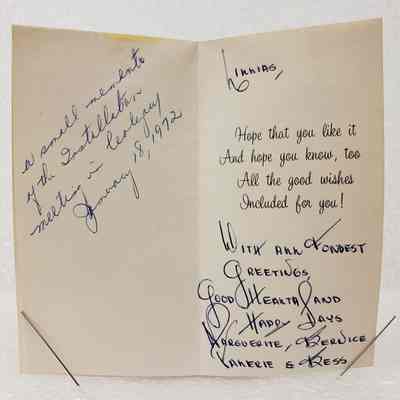 a small memento
of the Installation
meeting in
January 18, 1972
Linnias,
Hope that you like it
And hope you know, too
All the good wishes
Included for you!
With all Fondest
Greetings,
Good Health and
Happy Days
Marguerite, Bernice
Valerie & Bess